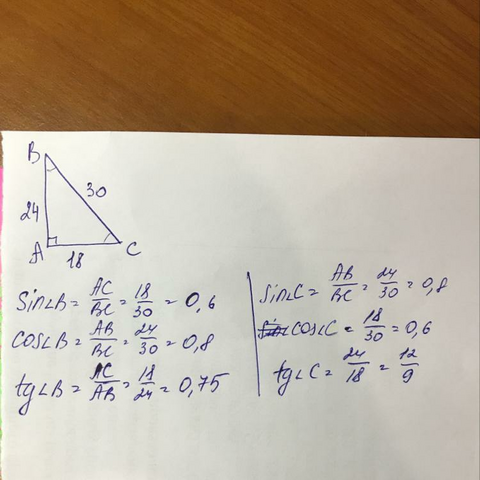 B
24
30
A
18
C
Sin∠B = AC/BC = 18/30 = 0,6
cos∠B = AB/BC = 24/30 = 0,8
tg∠B = AC/AB = 18/24 = 0,75
sin∠C = AB/BC = 24/30 = 0,8
cos∠C = 18/30 = 0,6
tg∠C = 24/18 = 12/9